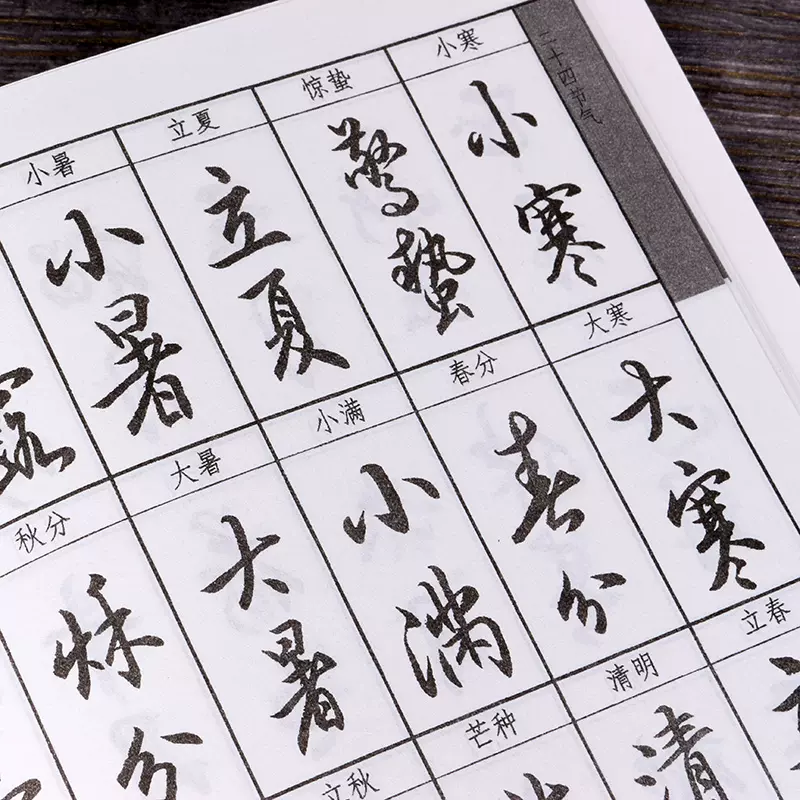 二十四节气
小寒
小寒
惊蛰
驚蟄
立夏
立夏
小暑
小暑
露
大寒
大寒
春分
春分
小满
小滿
大暑
大暑
秋分
秋分
立春
清明
清
芒种
立秋